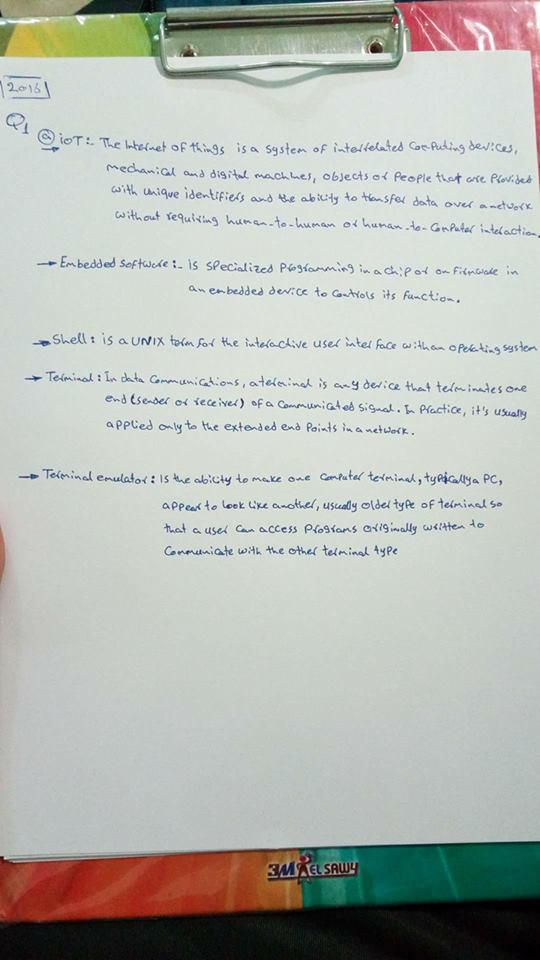 2016
Q1 (a) IOT:- The Internet of things is a system of interrelated computing devices,
mechanical and digital machines, objects or people that are provided
with unique identifiers and the ability to transfer data over a network
without requiring human-to-human or human-to-computer interaction.
→ Embedded software:- Is specialized programming in a chip or on firmware in
an embedded device to controls its function.
→ Shell: is a UNIX term for the interactive user interface with an operating system
→ Terminal: In data communications, a terminal is any device that terminates one
end (sender or receiver) of a communicated signal. In practice, it's usually
applied only to the extended end points in a network.
→ Terminal emulator: Is the ability to make one computer terminal, typically a PC,
appear to look like another, usually older type of terminal so
that a user can access programs originally written to
communicate with the other terminal type
3M EL SAWY